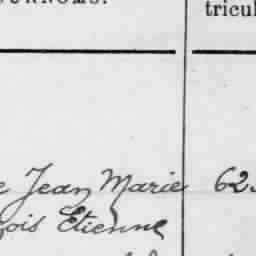 tricul
e Jean Marie 62
çois Etienne